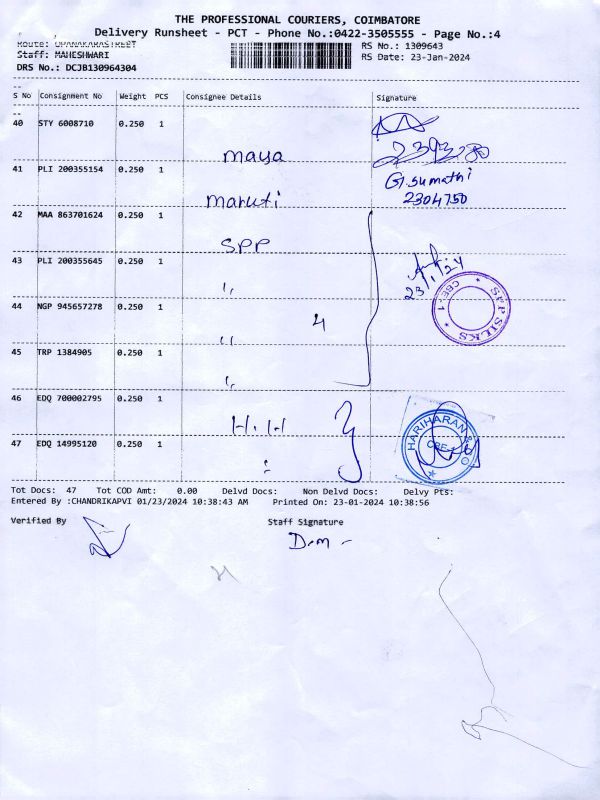 THE PROFESSIONAL COURIERS, COIMBATORE
Delivery Runsheet - PCT - Phone No.:0422-3505555 - Page No.:4
Route: UPANAKARASTREET RS No.: 1309643
Staff: MAHESHWARI RS Date: 23-Jan-2024
DRS No.: DCJB130964304
S No Consignment No Weight PCS Consignee Details Signature
40 STY 6008710 0.250 1
maya
41 PLI 200355154 0.250 1 G.Sumathi
Maruti 2304750
42 MAA 863701624 0.250 1
SPP
43 PLI 200355645 0.250 1 23/1/24
"
44 NGP 945657278 0.250 1 SPP SILKS CBE-1
" 4
45 TRP 1384905 0.250 1
"
46 EDQ 700002795 0.250 1
H.H HARIHARAN & CO CBE-1
47 EDQ 14995120 0.250 1
Tot Docs: 47 Tot COD Amt: 0.00 Delvd Docs: Non Delvd Docs: Delvy Pts:
Entered By :CHANDRIKAPVI 01/23/2024 10:38:43 AM Printed On: 23-01-2024 10:38:56
Verified By Staff Signature
D.m -